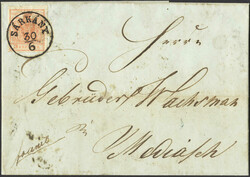 SÁRKÁNY
30
6
Herrn
Gebrüder Wachsman
in
Mediasch
franco